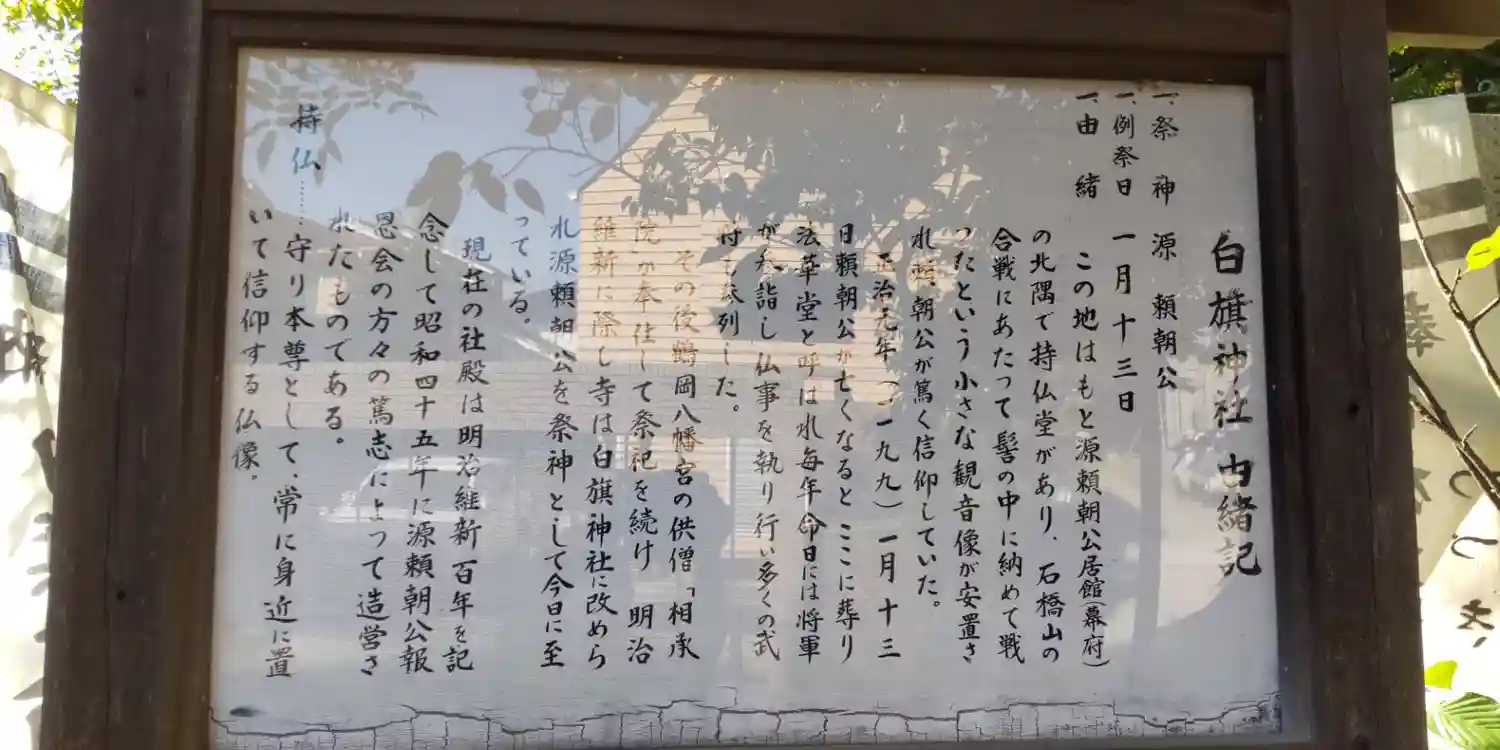 白旗神社 由緒記
一、祭神 源頼朝公
一、例祭日 一月十三日
一、由緒 この地はもと源頼朝公居館(幕府)
の北隅で持仏堂があり、石橋山の
合戦にあたって髻の中に納めて戦
ったという小さな観音像が安置さ
れ頼朝公が篤く信仰していた。
正治元年(一一九九)一月十三
日頼朝公が亡くなるとここに葬り
法華堂と呼ばれ毎年命日には将軍
が参詣し仏事を執り行い多くの武
将も参列した。
その後鶴岡八幡宮の供僧「相承
院」が奉仕して祭祀を続け 明治
維新に際し寺は白旗神社に改めら
れ源頼朝公を祭神として今日に至
っている。
現在の社殿は明治維新百年を記
念して昭和四十五年に源頼朝公報
恩会の方々の篤志によって造営さ
れたものである。
持仏……守り本尊として、常に身近に置
いて信仰する仏像。
奉